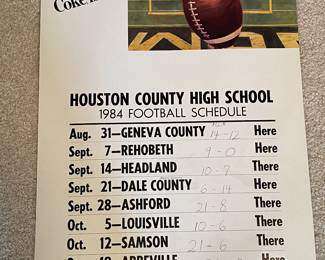 Coke
HOUSTON COUNTY HIGH SCHOOL
1984 FOOTBALL SCHEDULE
Aug. 31—GENEVA COUNTY 14-12 Here
Sept. 7—REHOBETH 9-0 Here
Sept. 14—HEADLAND 10-9 There
Sept. 21—DALE COUNTY 6-14 Here
Sept. 28—ASHFORD 21-8 There
Oct. 5—LOUISVILLE 10-6 There
Oct. 12—SAMSON 21-6 There